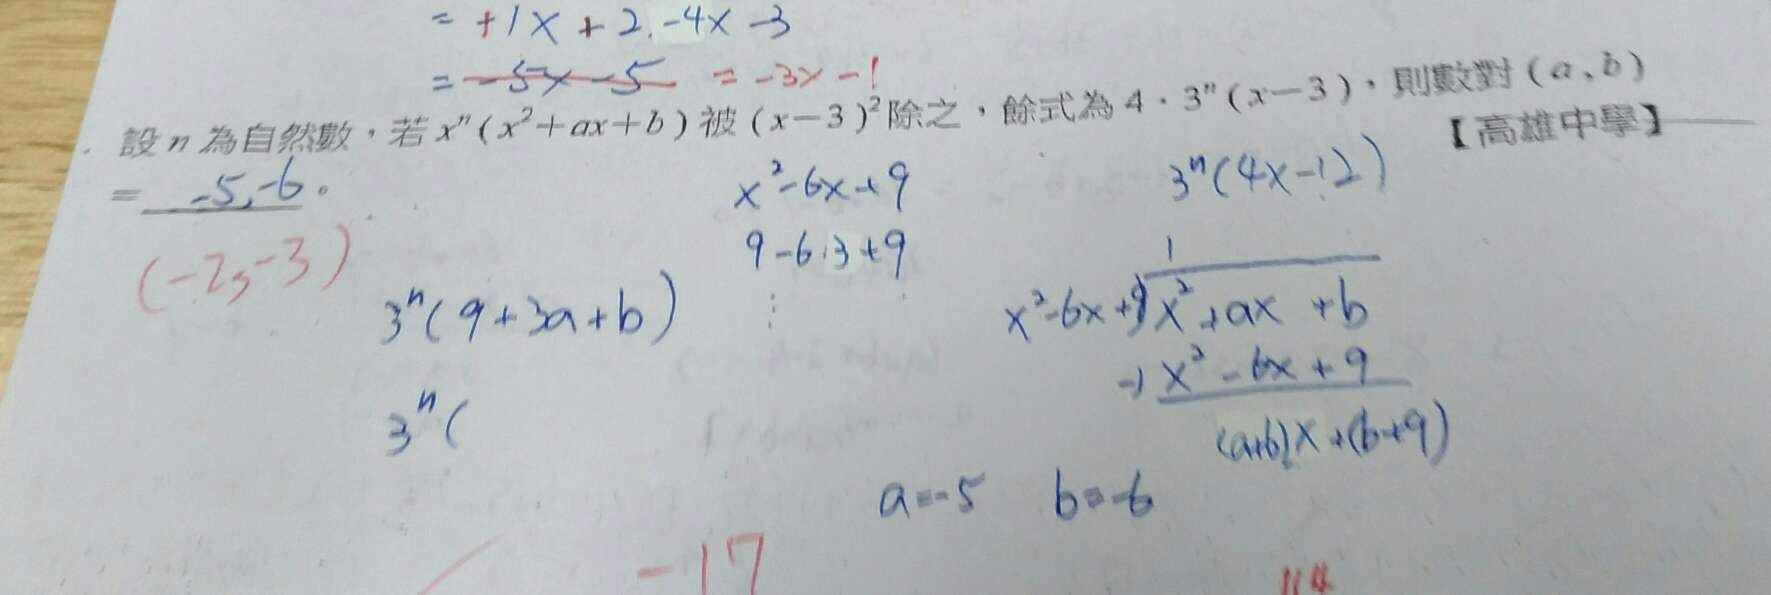 = +1x + 2 -4x -3
= -5x -5 = -3x -1
設 n 為自然數，若 xⁿ(x²+ax+b) 被 (x-3)² 除之，餘式為 4．3ⁿ(x-3)，則數對 (a、b)
= -5,-6 。
【高雄中學】
(-2, -3)
x²-6x+9
9-6·3+9
⋮
3ⁿ(4x-12)
3ⁿ(9+3a+b)
3ⁿ(
1
x²-6x+9 x²+ax+b
-) x²-6x+9
(a+6)x+(b+9)
a=-5 b=-6
-17
114